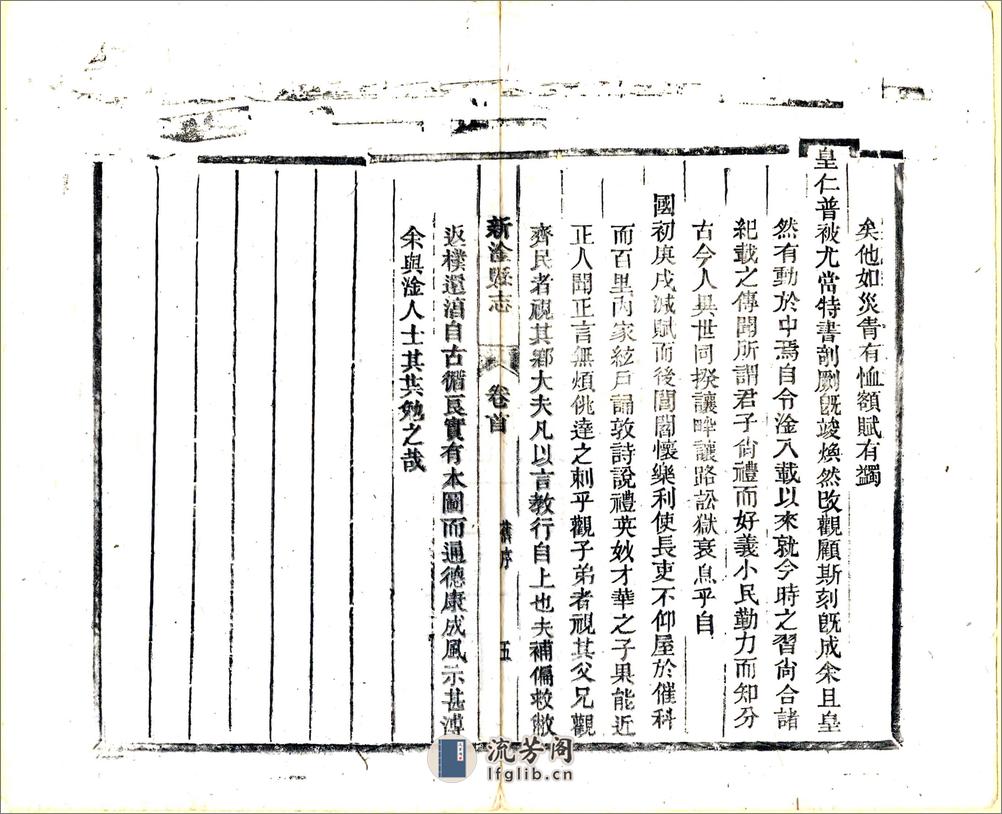 矣他如災眚有恤額賦有蠲
皇仁普被尤當特書剞劂旣竣煥然改觀顧斯刻旣成余且皇
然有動於中焉自令淦入載以來就今時之習尙合諸
紀載之傳聞所謂君子尙禮而好義小民勤力而知分
古今人與世同揆讓畔讓路訟獄衰息乎自
國初庚戌減賦而後閭閻懷樂利使長吏不仰屋於催科
而百里內家絃戶誦敦詩說禮英妙才華之子果能近
正人聞正言無煩佻達之刺乎觀子弟者視其父兄觀
齊民者視其鄉大夫凡以言教行自上也夫補偏救敝
新淦縣志 卷首 舊序 五
返樸還淳自古循良實有本圖而通德康成風示甚溥
余與淦人士其共勉之哉
流芳阁
lfglib.cn